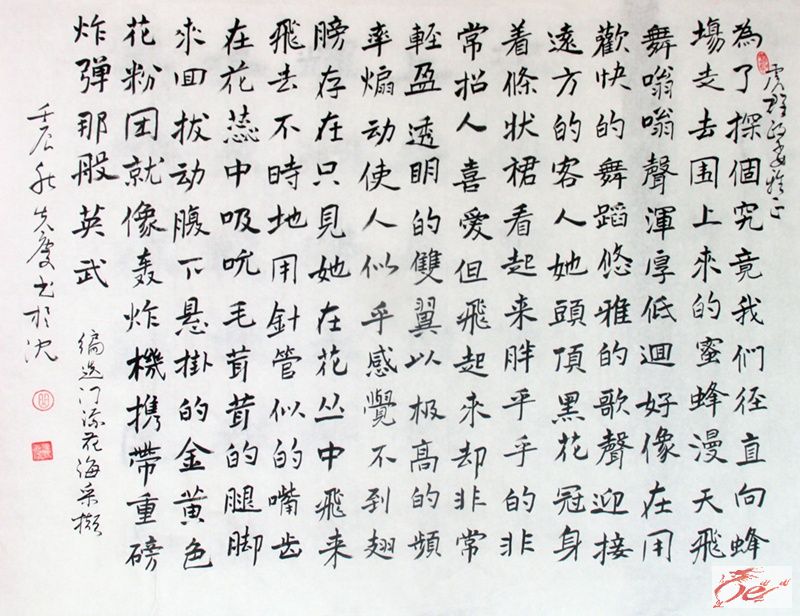 為了探個究竟我們径直向蜂
場走去围上來的蜜蜂漫天飛
舞嗡嗡聲渾厚低迴好像在用
歡快的舞蹈悠雅的歌聲迎接
遠方的客人她頭頂黑花冠身
着條状裙看起来胖乎乎的非
常招人喜愛但飛起來却非常
輕盈透明的雙翼以极高的頻
率煽动使人似乎感覺不到翅
膀存在只見她在花丛中飛来
飛去不時地用針管似的嘴齿
在花蕊中吸吮毛茸茸的腿脚
來回拔动腹下悬掛的金黃色
花粉团就像轰炸機携帶重磅
炸弹那般英武
編选门源花海采撷
壬辰秋书於沈